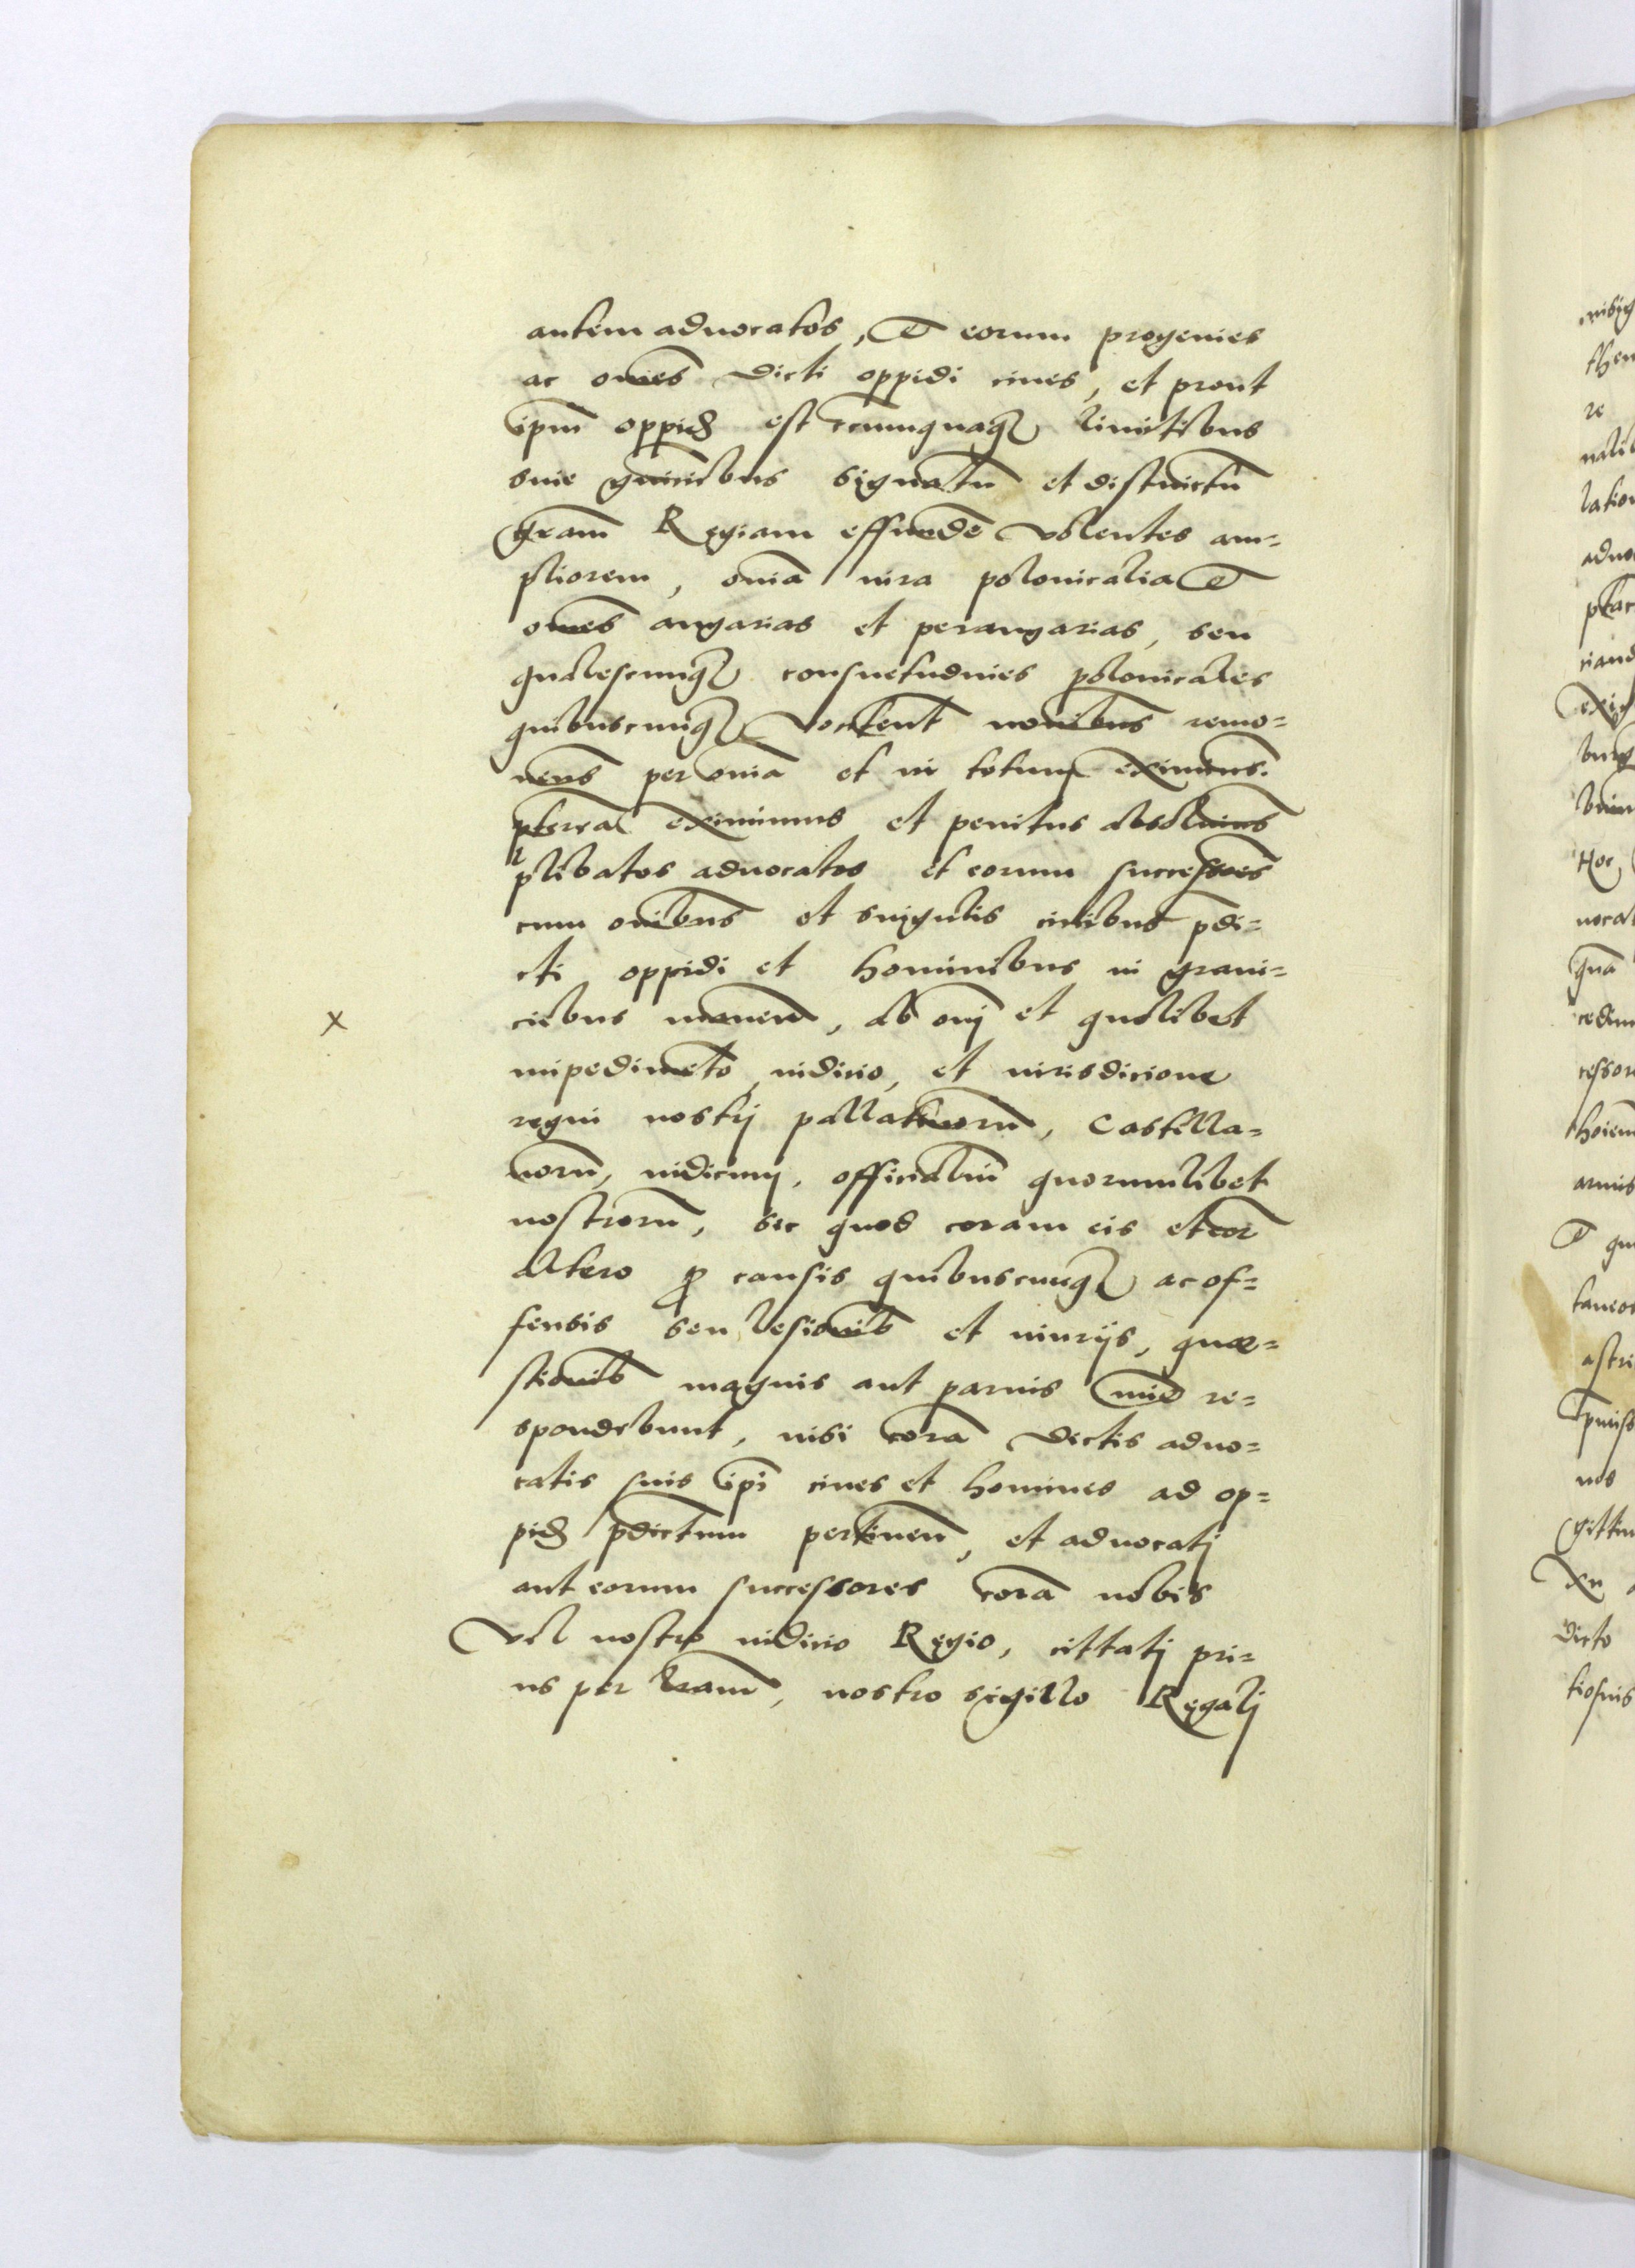 autem aduocatos, et eorum progenies
ac om̅es dicti oppidi ciues, et prout
ip̅m oppid̅ est circumquaq̨ limitibus
siue graniciebus signatu̅ et distinctu̅
gr̅am Regiam effunde̅ volentes am=
pliorem, om̅ia iura polonicalia et
om̅es angarias et perangarias, seu
qualescunq̨ consuetudines polonicales
quibuscunq̨ vocitent̅ no̅ibus remo=
uem̅s per om̅ia et in totum eximim̅s.
p̅terea eximimus et penitus absoluim̅s
p̅libatos aduocatos et eorum successor̅es
cum om̅ibus et singulis ciuibus p̅di=
cti oppidi et hominibus in grani=
x ciebus manen̅, ab om̅j et quolibet
impedime̅to, iudicio, et iurisdicione
regni nostrj pallatinoru̅, Castella=
noru̅, iudicum, officialiu̅ quorumlibet
nostroru̅, sic quod coram eis et cor̅
altero p̱ causis quibuscunq̨ ac of=
fensis seu lesionib̅ et iniurijs, quæ=
stionib̅ magnis aut paruis mi̅e re=
spondebunt, nisi cora̅ dictis aduo=
catis suis ip̅i ciues et homines ad op=
pid̅ p̅dictum pertinen̅, et aduocatj
aut eorum successores cora̅ nobis
Vel nostro iudicio Regio, cittatj pri=
us per l̅ram, nostro sigillo Regalj